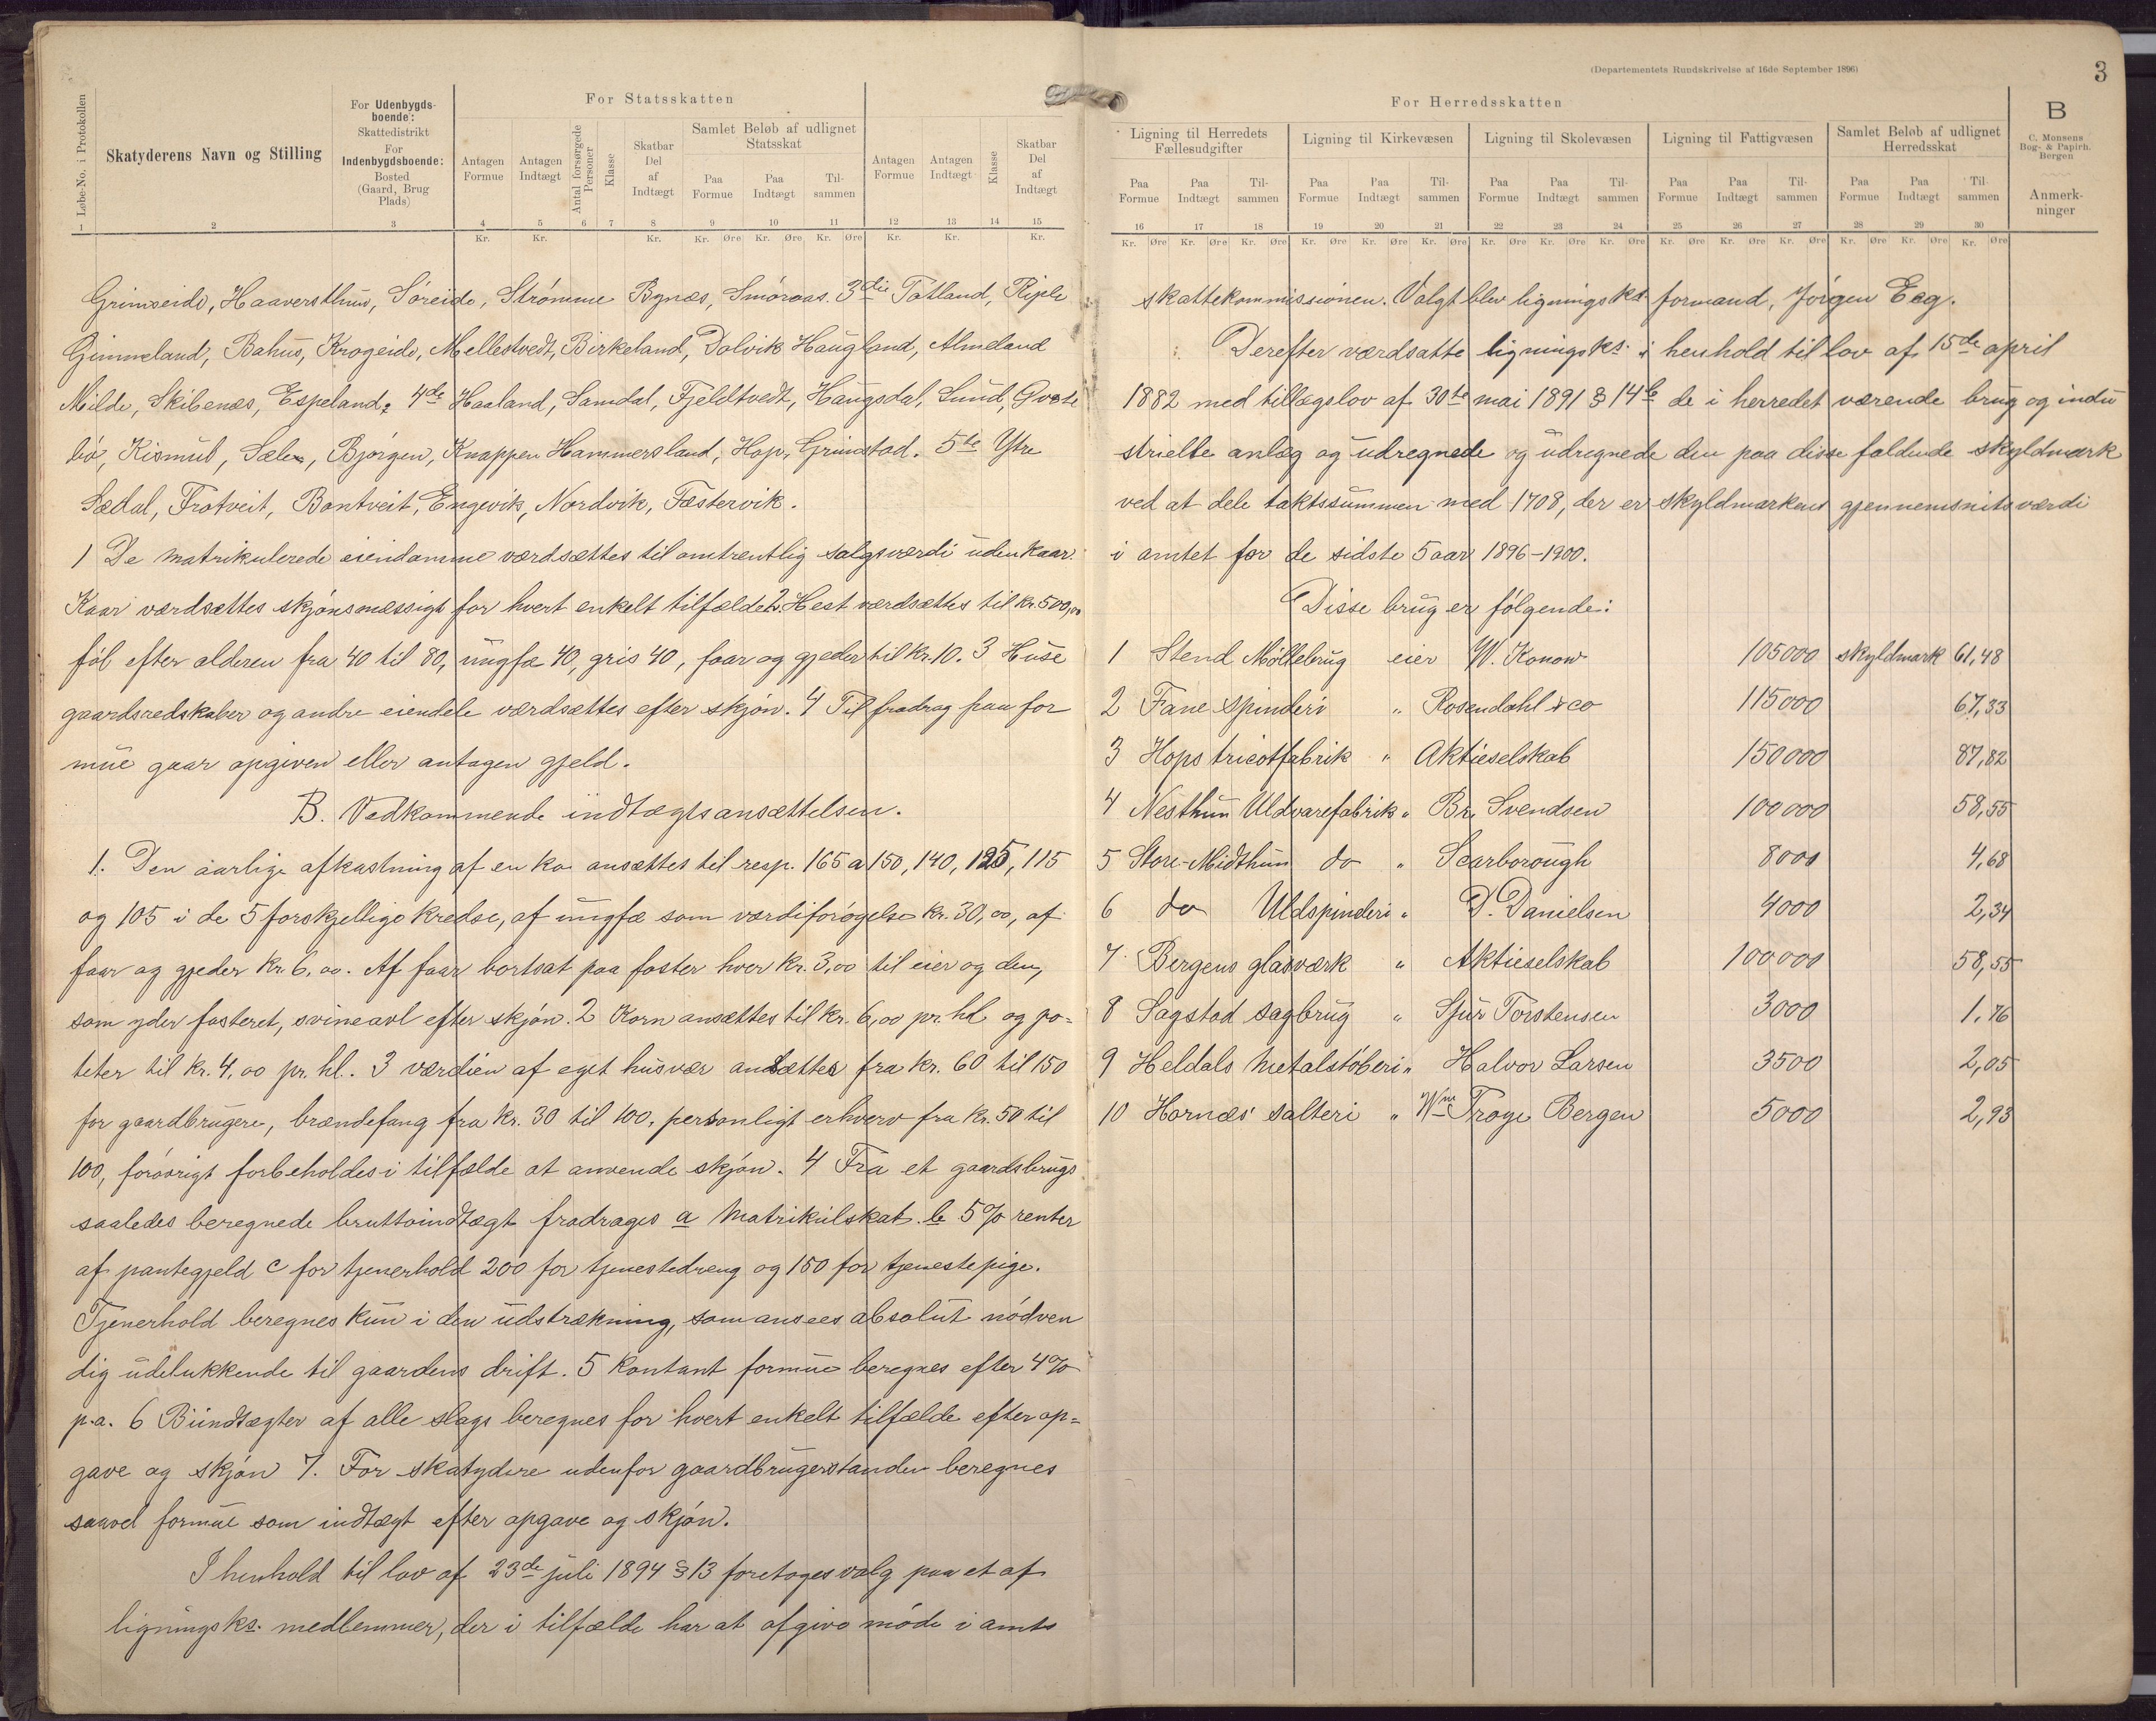 Løbe-No. i Protokollen
Skatyderens Navn og Stilling
For Udenbygds-
boende:
Skattedistrikt
For
Indenbygdsboende:
Bosted
(Gaard, Brug
Plads)
For Statsskatten
Antagen
Formue
Antagen
Indtægt
Antal forsørgede
Personer
Klasse
Skatbar
Del
af
Indtægt
Samlet Beløb af udlignet
Statsskat
Paa
Formue
Paa
Indtægt
Til-
sammen
Antagen
Formue
Antagen
Indtægt
Klasse
Skatbar
Del
af
Indtægt
1 2 3 4 5 6 7 8 9 10 11 12 13 14 15
Kr. Kr. Kr. Kr. Øre Kr. Øre Kr. Øre Kr. Kr. Kr.
Grimseide, Haaversthun, Søreide, Strømme Bynæs, Smøraas. 3die Tøtland, Riple
Gimmeland, Bahus, Krogeide, Mellestvedt, Birkeland, Dolvik Haugland, Almeland
Milde, Skibenæs, Espeland, 4de Haaland, Samdal, Fjeldtvedt, Haugsdal, Lund,
bø, Kismul, Sælen, Bjørgen, Knappen Hammersland, Hop, Grimstad. 5te Ytre
Sædal, Frotveit, Bontveit, Engevik, Nordvik, Fæstervik.
1 De matrikulerede eiendomme værdsættes til omtrentlig salgsværdi uden kaar.
Kaar værdsættes skjønsmæssigt for hvert enkelt tilfælde 2. Hest værdsættes til kr. 500,00
føl efter alderen fra 40 til 80, ungfæ 40, gris 40, faar og gjeder til kr. 10. 3 Huse
gaardsredskaber og andre eiendele værdsættes efter skjøn. 4 Til fradrag paa for
mue gaar opgiven eller antagen gjeld.
B. Vedkommende indtægtsansættelsen.
1. Den aarlige afkastning af en ko ansættes til resp. 165 a 150, 140, 125, 115
og 105 i de 5 forskjellige kredse, af ungfæ som værdiforøgelse kr. 30,00, af
faar og gjeder kr. 6,00. Af faar bortsat paa foster hver kr. 3,00 til eier og den,
som yder fosteret, svineavl efter skjøn. 2 Korn ansættes til kr. 6,00 pr. hl og po=
teter til kr. 4,00 pr. hl. 3 værdien af eget husvær ansættes fra kr. 60 til 150
for gaardbrugere, brændefang fra kr. 30 til 100, personligt erhverv fra kr. 50 til
100, forøvrigt forbeholdes i tilfælde at anvende skjøn. 4 Fra et gaardsbrugs
saaledes beregnede bruttoindtægt fradrages a Matrikulskat. b 5% renter
af pantegjeld c for tjenerhold 200 for tjenestedreng og 150 for tjenestepige.
Tjenerhold beregnes kun i den udstrækning, som ansees absolut nødven
dig udelukkende til gaardens drift. 5 Kontant formue beregnes efter 4%
p.a. 6 Biindtægter af alle slags beregnes for hvert enkelt tilfælde efter op=
gave og skjøn 7. For skatydere udenfor gaardbrugerstanden beregnes
saavel formue som indtægt efter opgave og skjøn.
I henhold til lov af 23de juli 1894 § 13 foretoges valg paa et af
ligningsks. medlemmer, der i tilfælde har at afgive møde i amts
(Departementets Rundskrivelse af 16de September 1896)
3
For Herredsskatten
Ligning til Herredets
Fællesudgifter
Ligning til Kirkevæsen
Ligning til Skolevæsen
Ligning til Fattigvæsen
Samlet Beløb af udlignet
Herredsskat
B
C. Monsens
Bog- & Papirh.
Bergen
Anmerk-
ninger
Paa Formue Paa Indtægt Til-sammen Paa Formue Paa Indtægt Til-sammen Paa Formue Paa Indtægt Til-sammen Paa Formue Paa Indtægt Til-sammen Paa Formue Paa Indtægt Til-sammen
16 17 18 19 20 21 22 23 24 25 26 27 28 29 30
Kr. Øre Kr. Øre Kr. Øre Kr. Øre Kr. Øre Kr. Øre Kr. Øre Kr. Øre Kr. Øre Kr. Øre Kr. Øre Kr. Øre Kr. Øre Kr. Øre Kr. Øre
skattekommissionen. Valgt blev ligningsks formand, Jørgen Eeg.
Derefter værdsatte ligningsks. i henhold til lov af 15de april
1882 med tillægslov af 30te mai 1891 § 14b de i herredet værende brug og indu
strielle anlæg og udregnede og udregnede den paa disse faldende skyldmark
ved at dele takstsummen med 1708, der er skyldmarkens gjennemsnitsværdi
i amtet for de sidste 5 aar 1896-1900.
Disse brug er følgende:
1 Stend Møllebrug eier W. Konow 105000 skyldmark 61,48
2 Fane Spinderi " Rosendahl & co 115000 67,33
3 Hops tricotfabrik " Aktieselskab 150000 87,82
4 Nesthun Uldvarefabrik " Br. Svendsen 100000 58,55
5 Store-Midthun do " Scarborough 8000 4,68
6 do Uldspinderi " D. Danielsen 4000 2,34
7 Bergens glasværk " Aktieselskab 100000 58,55
8 Sagstad sagbrug " Sjur Torstensen 3000 1,76
9 Heldals Metalstøberi " Halvor Larsen 3500 2,05
10 Hornæs salteri " Wm Troye Bergen 5000 2,93